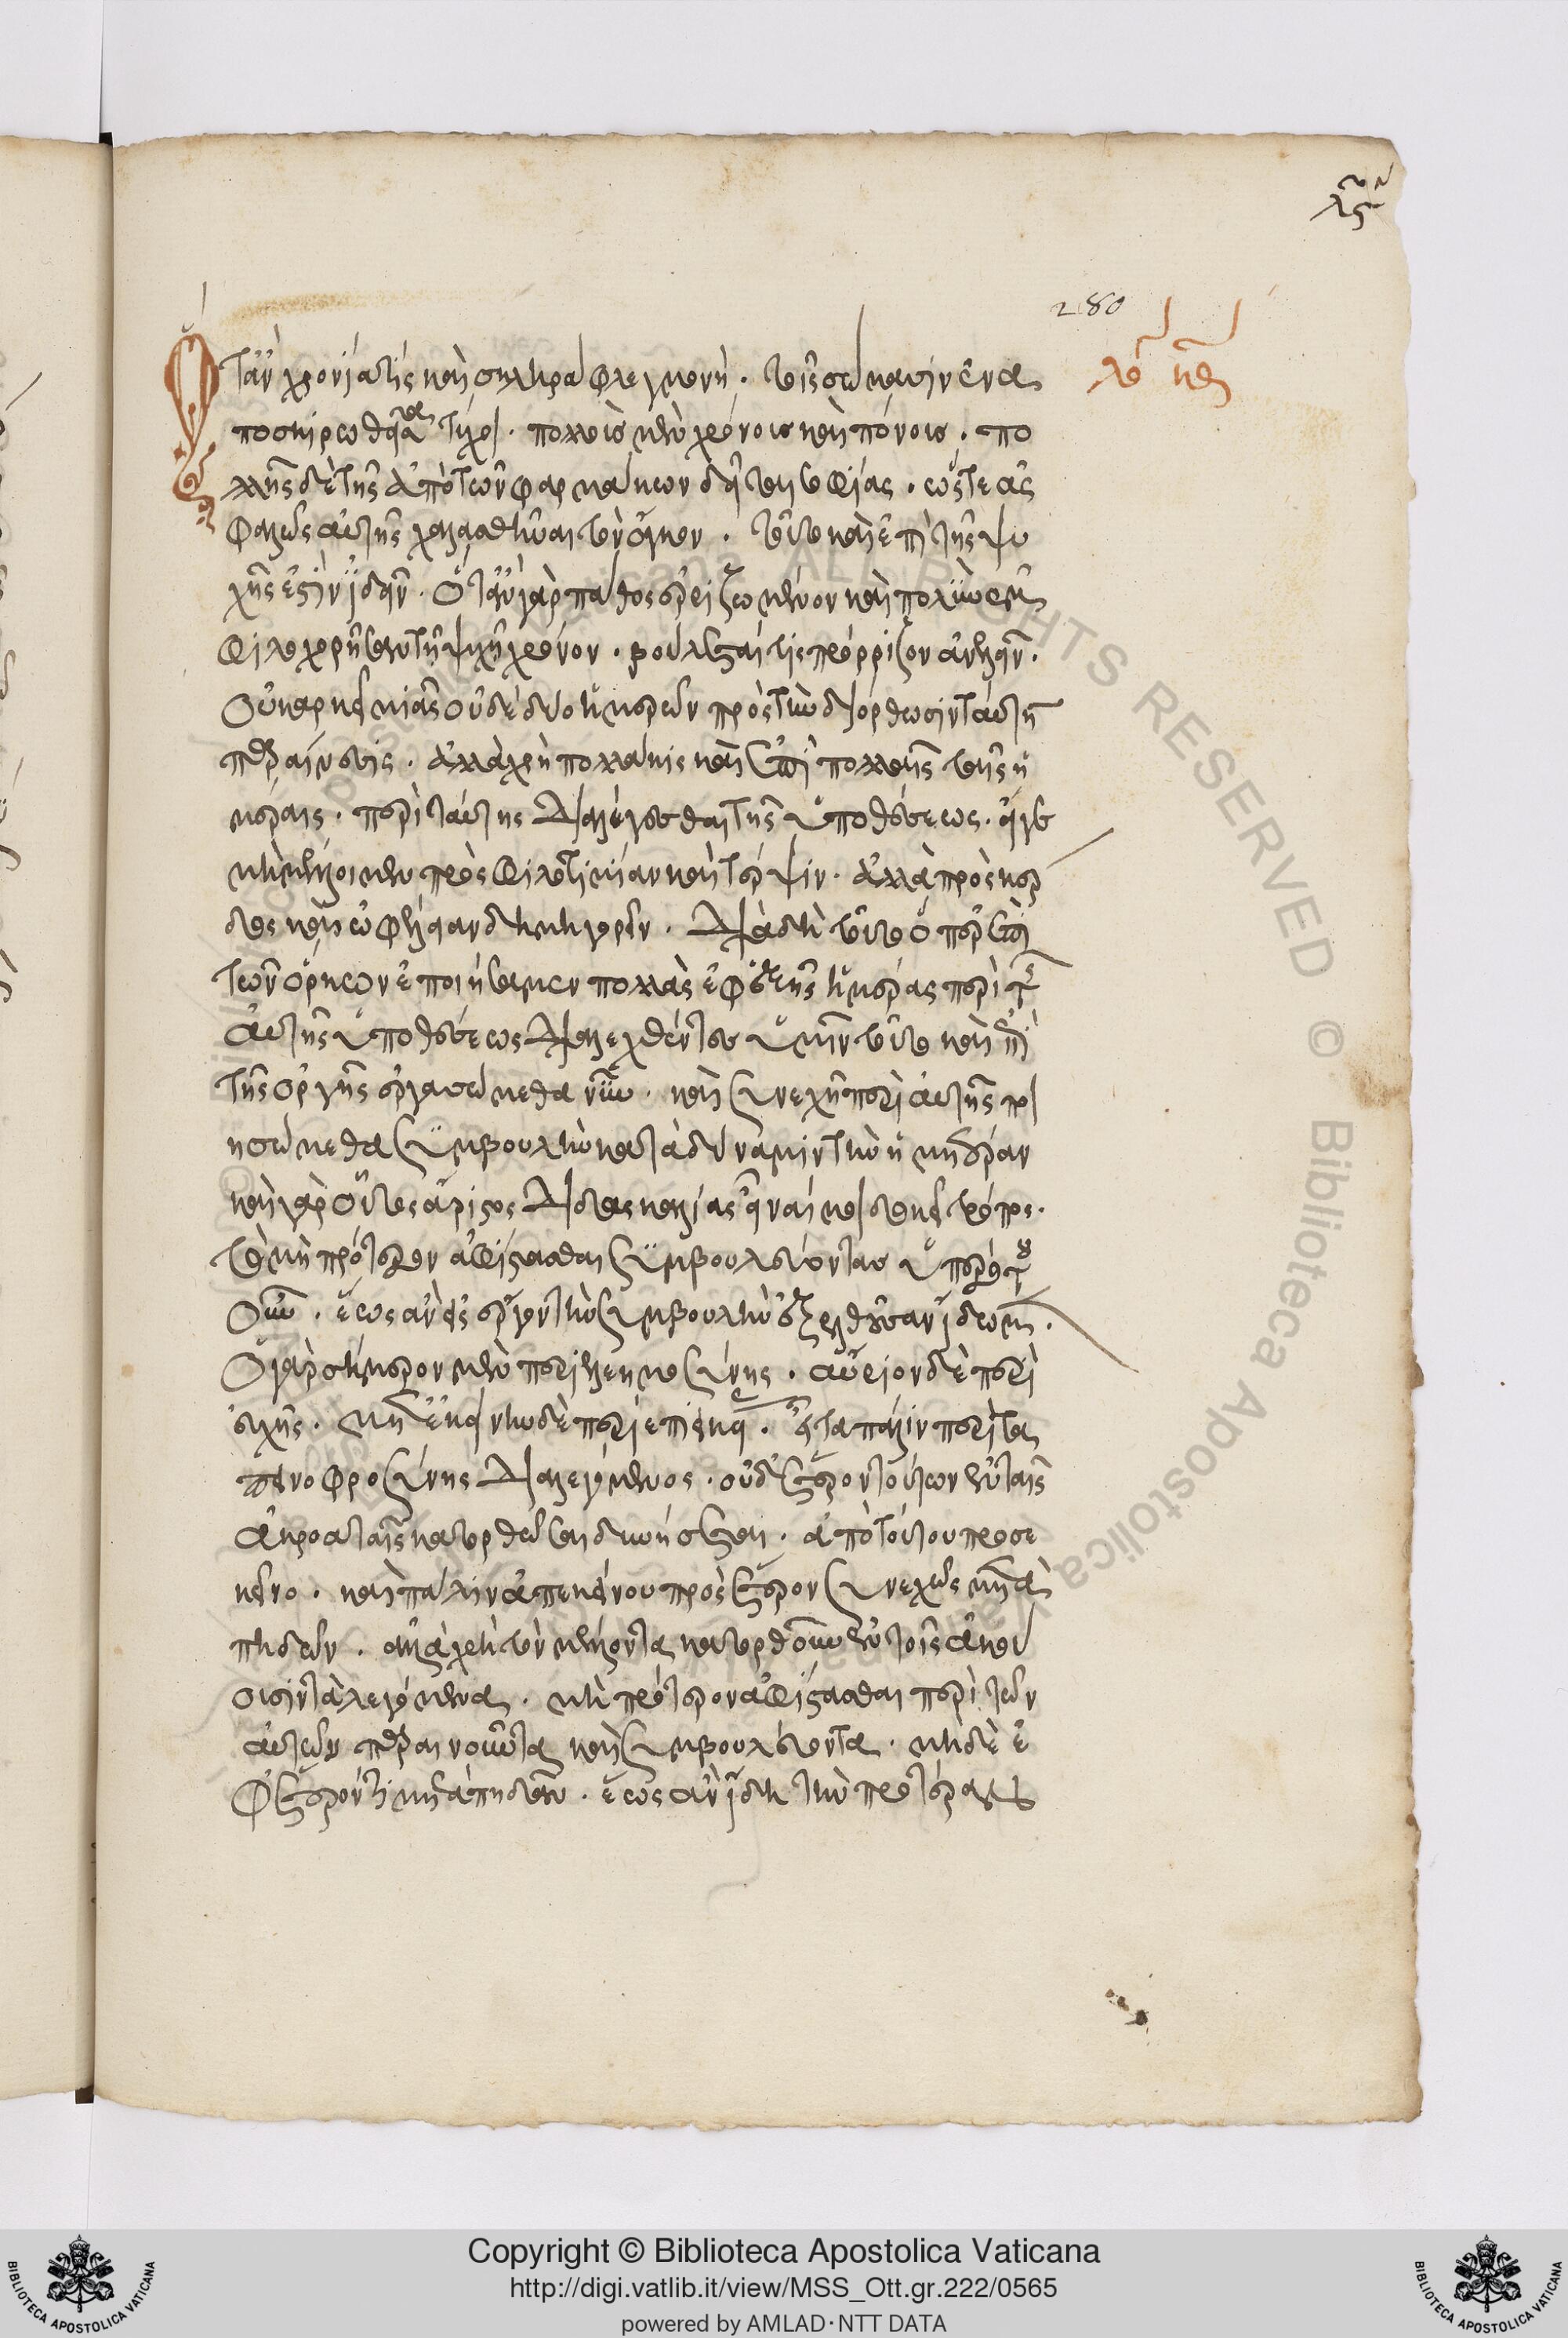 λϛ
280
λό κη
Ὅταν χρονία τις καὶ σκληρὰ φλεγμονὴ · τοῖς σώμασιν ἐνα
ποσκιρωθεῖσα τύχη · πολλοῖς μὲν χρόνοις καὶ πόνοις · πο
λλῆς δὲ τῆς ἀπὸ τῶν φαρμάκων δεῖται σοφίας · ὥστε ἀσ
φαλῶς αὐτῆς χαλασθῆναι τὸν ὄγκον · τοῦτο καὶ ἐπὶ τῆς ψυ
χῆς ἐστὶν ἰδεῖν · ὅταν γὰρ πάθος ἐρριζωμένον καὶ πολὺν ἐμ
φιλοχωρῆσαν τῇ ψυχῇ χρόνον · βούληταί τις πρόρριζον ἀνελεῖν ·
οὐκ ἀρκεῖ μιᾶς οὐδὲ δύο ἡμερῶν πρὸς τὴν διόρθωσιν ταύτην
παραίνεσις · ἀλλὰ χρὴ πολλάκις καὶ ἐπὶ πολλαῖς ταῖς ἡ
μέραις · περὶ ταύτης διαλέγεσθαι τῆς ὑποθέσεως · εἴγε
μὴ μέλλοιμεν πρὸς φιλοτιμίαν καὶ τέρψιν · ἀλλὰ πρὸς κέρ
δος καὶ ὠφέλειαν δημηγορεῖν · διὰ δὴ τοῦτο ὅπερ ἐπὶ
τῶν ὅρκων ἐποιήσαμεν πολλὰς ἐφεξῆς ἡμέρας περὶ τῆς
αὐτῆς ὑποθέσεως διαλεχθέντες ὑμῖν τοῦτο καὶ ἐπὶ
τῆς ὀργῆς ἐργασώμεθα νῦν · καὶ συνεχῆ περὶ αὐτῆς ποι
ησώμεθα συμβουλὴν κατὰ δύναμιν τὴν ἡμετέραν
καὶ γὰρ οὗτος ἄριστος διδασκαλίας εἶναί μοι δοκεῖ τρόπος ·
τὸ μὴ πρότερον ἀφίστασθαι συμβουλεύοντας ὑπὲρ ὁτου
οῦν · ἕως ἂν εἰς ἔργον τὴν συμβουλὴν ἐξελθοῦσαν ἴδωμεν ·
ὁ γὰρ σήμερον μὲν περὶ ἐλεημοσύνης · αὔριον δὲ περὶ
εὐχῆς · μετ' ἐκείνην δὲ περὶ ἐπιεικείας · εἶτα πάλιν περὶ τα
πεινοφροσύνης διαλεγόμενος · οὐδέτερον τούτων ἐν τοῖς
ἀκροαταῖς κατορθῶσαι δυνήσεται · ἀπὸ τούτου πρὸς ἐ
κεῖνο · καὶ πάλιν ἀπ' ἐκείνου πρὸς ἕτερον συνεχῶς μετα
πηδῶν · ἀλλὰ χρὴ τὸν μέλλοντα κατορθοῦν ἐν τοῖς ἀκού
ουσιν τὰ λεγόμενα · μὴ πρότερον ἀφίστασθαι περὶ τῶν
αὐτῶν παραινοῦντα καὶ συμβουλεύοντα · μηδὲ ἐ
φ' ἕτερόν τι μεταπηδᾶν · ἕως ἂν ἴδη τὴν προτέραν